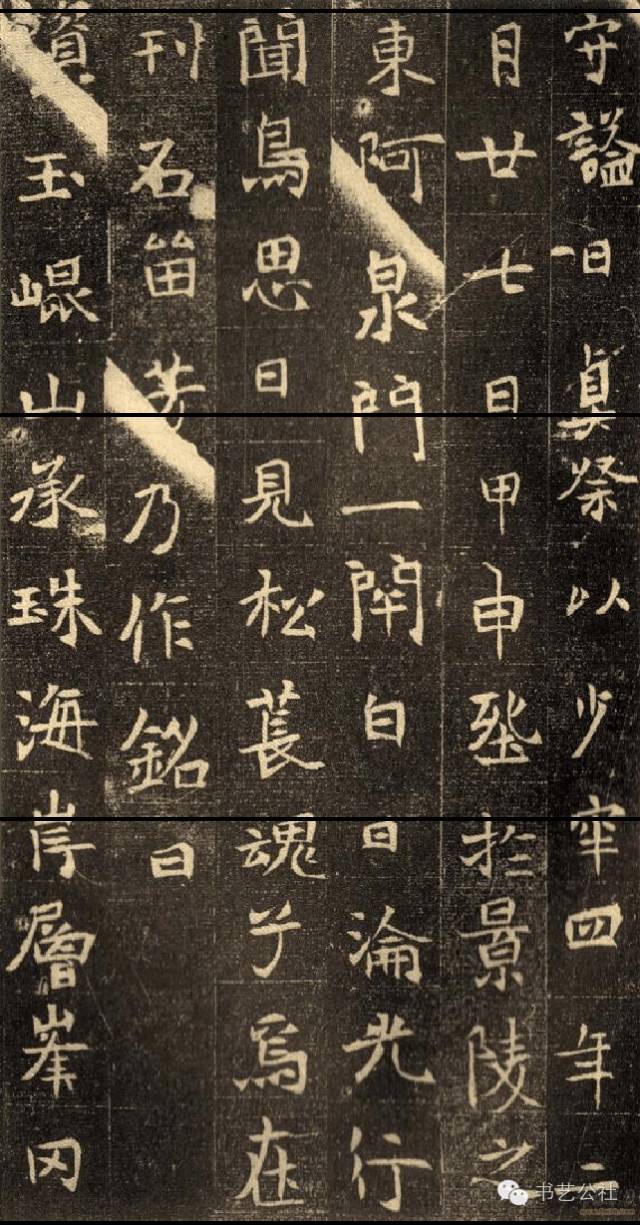 守諡曰貞祭以少牢四年二
月廿七日甲申於景陵之
東阿泉門一閇白日淪光行
聞鳥思日見松萇魂兮焉在
刊石畱芳乃作銘曰
玉崐山承珠海岸層峯冈
书艺公社